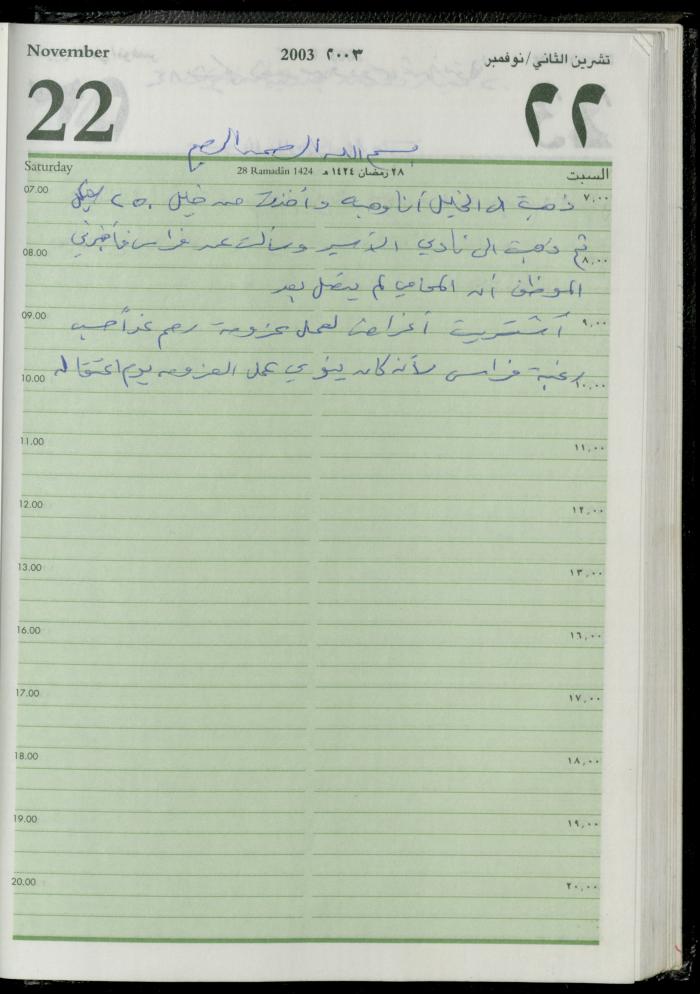 November 2003 ٢٠٠٣ تشرين الثاني/نوفمبر
22 ٢٢
بسم الله الرحمن الرحيم
Saturday 28 Ramadān 1424 ٢٨ رمضان ١٤٢٤ هـ السبت
07.00 ٧,٠٠
ذهبت الى الخليل أنا وهبه وأخذت من خليل ٢٥٠ شيكل
ثم ذهبت الى نادي الأسير وسألت عن فراس فأخبرني
08.00 ٨,٠٠
الموظف أن المحامي لم يتصل بعد
09.00 ٩,٠٠
أشتريت أغراض لعمل عزومة رحم غداً حسب
رغبة فراس لأنه كان ينوي عمل العزومه يوم اعتقاله
10.00 ١٠,٠٠
11.00 ١١,٠٠
12.00 ١٢,٠٠
13.00 ١٣,٠٠
16.00 ١٦,٠٠
17.00 ١٧,٠٠
18.00 ١٨,٠٠
19.00 ١٩,٠٠
20.00 ٢٠,٠٠